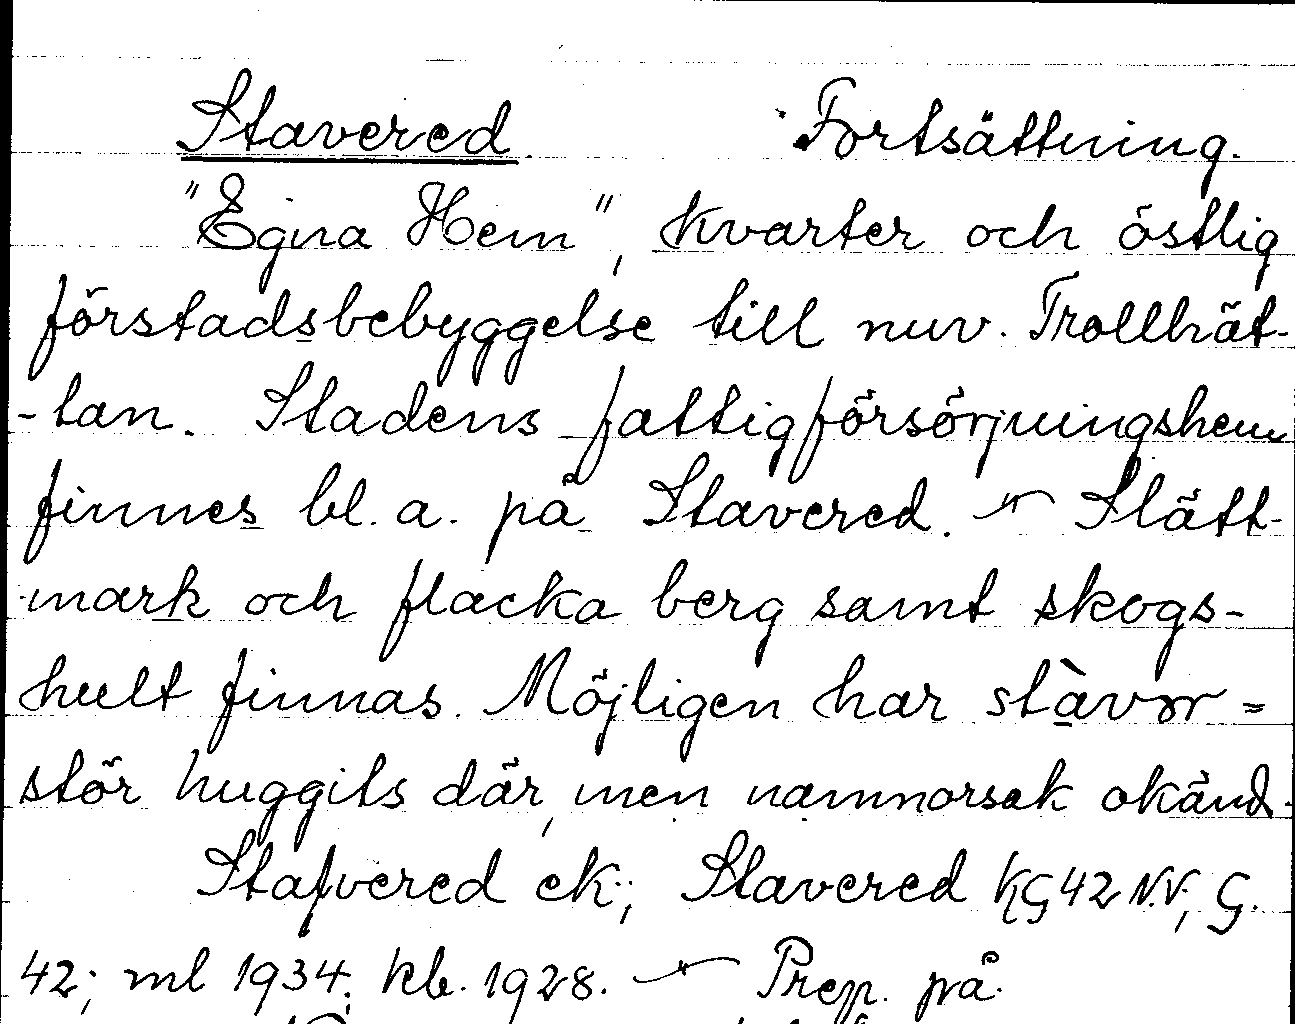 Stavered Fortsättning.
"Egna Hem", kvarter och östlig
förstadsbebyggelse till nuv. Trollhät-
-tan. Stadens fattigförsörjningshem
finnes bl. a. på Stavered. - Slätt-
mark och flacka berg samt skogs-
hult finnas. Möjligen har stàvør=
stör huggits där, men namnorsak okänd.
Stafvered ek.; Stavered KG 42 N.V., G.
42; ml 1934; kb. 1928. - Prep. på.